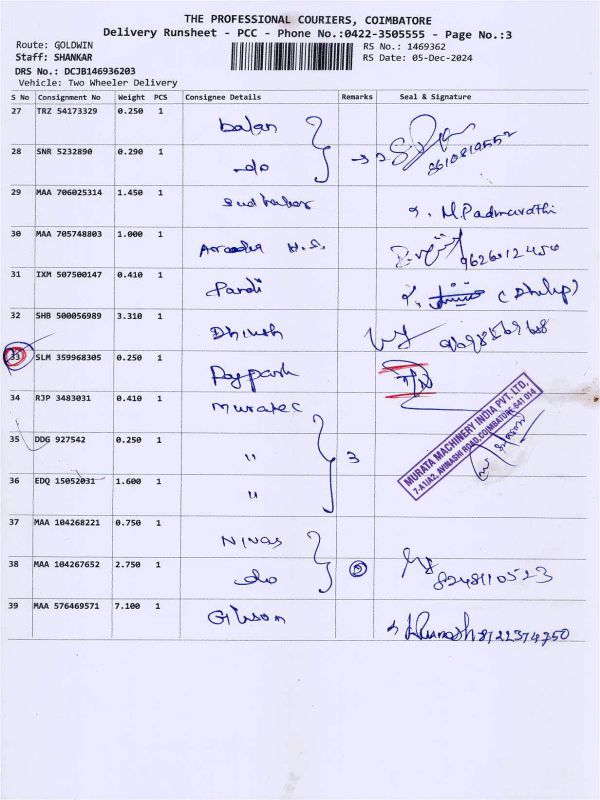 THE PROFESSIONAL COURIERS, COIMBATORE
Delivery Runsheet - PCC - Phone No.:0422-3505555 - Page No.:3
Route: GOLDWIN RS No.: 1469362
Staff: SHANKAR RS Date: 05-Dec-2024
DRS No.: DCJB146936203
Vehicle: Two Wheeler Delivery
S No Consignment No Weight PCS Consignee Details Remarks Seal & Signature
27 TRZ 54173329 0.250 1 balan
28 SNR 5232890 0.290 1 do 2 8610810552
29 MAA 706025314 1.450 1 M.Padmavathi
30 MAA 705748803 1.000 1 9626012450
31 IXM 507500147 0.410 1 Pandi (Dhilip)
32 SHB 500056989 3.310 1 Dhinesh
33 SLM 359968305 0.250 1
34 RJP 3483031 0.410 1 Muratec
35 DDG 927542 0.250 1 " 3
36 EDQ 15052031 1.600 1 "
MURATA MACHINERY INDIA PVT. LTD,
7-A1/A2, AVINASHI ROAD, COIMBATORE 641 014
37 MAA 104268221 0.750 1 Nivas
38 MAA 104267652 2.750 1 do 8248110523
39 MAA 576469571 7.100 1 Gibson 8122374750